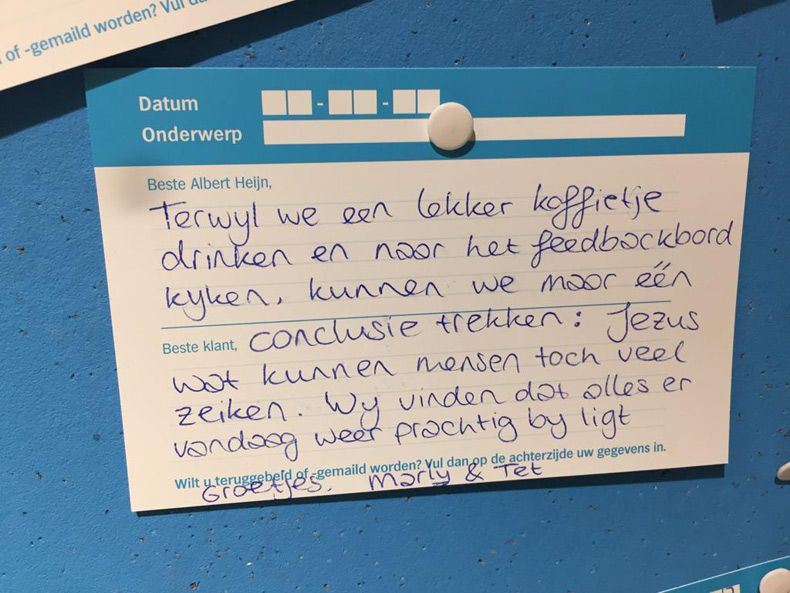 of -gemaild worden? Vul du
Datum
Onderwerp
Beste Albert Heijn,
Terwyl we een lekker koffietje
drinken en naar het feedbackbord
kyken, kunnen we maar één
Beste klant, conclusie trekken: Jezus
wat kunnen mensen toch veel
zeiken. Wy vinden dat alles er
vandaag weer prachtig by ligt
Wilt u teruggebeld of -gemaild worden? Vul dan op de achterzijde uw gegevens in.
Groetjes. Marly & Tet